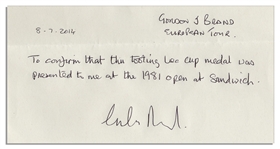 GORDON J BRAND
8-7-2014
EUROPEAN TOUR.
To confirm that the Tooting Bec cup medal was
presented to me at the 1981 open at Sandwich.